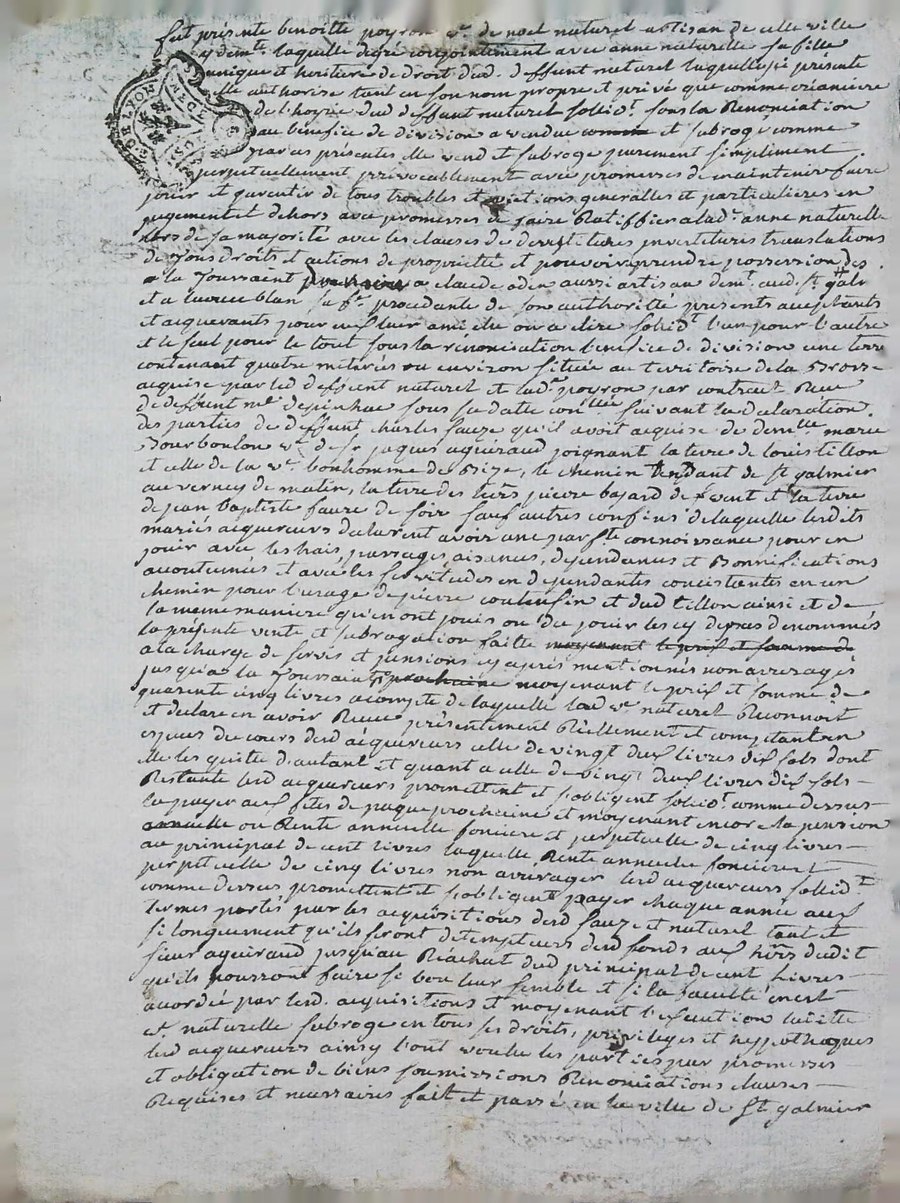 fut présente benoitte poyron v.e de noel naturel artisan de cette ville
y dem.te laquelle de gré conjointement avec anne naturelle sa fille
unique et heritiere de droit dud. deffunt naturel laquelle présente
elle authorise tant en son nom propre et privé que comme créanciere
de l'hoyrie dud deffunt naturel sollid.t sous la Renonciation
au bénéfice de division a vendu et subrogé comme
par ces présentes elle vend et subroge purement simpliment
perpetuellement irrevocablement avec promesses de maintenir faire
jouir et garentir de tous troubles et evictions generalles et particulieres en
jugement et dehors avec promesses de faire Ratiffier a lad.e anne naturelle
lors de sa majorité avec les clauses de devestitures investitures translations
de tous droits et actions de proprieté et pouvoir prendre possession des
a la Toussaint a claude oden aussi artisan dem.t aud. St galm
et a blan sa f.e procedante de son authorité présents acceptants
et acquerants pour eux leur ami élu ou a élire sollid.t l'un pour l'autre
et le seul pour le tout sous la rénonciation bénéfice de division une terre
contenant quatre métérées ou environ située au territoire de la
acquise par led deffunt naturel et lad.e poyron par contract Reçu
de deffunt m.e depinhac sous sa datte suivant la déclaration
des parties de deffunt charles fauze qu'il avoit acquise de dem.lle marie
Bourboulon v.e de s.r jaques aguiraud joignant la terre de louis tillon
et celle de la v.e bonhomme de Bize, le chemin tendant de St galmier
au verney de matin, la terre des hers pierre bajard de vent et la terre
de jean baptiste faure de soir sauf autres confins de laquelle lesdits
mariés acquereurs declarent avoir une parf.te connoissance pour en
jouir avec les hais, passages, aisances, dependances et Bonnifications
accoutumées et avec les servitudes en dependantes concistentes en un
chemin pour l'usage de pierre coutensin et dud tillon ainsi et de
la meme maniere qu'en ont jouis ou du jouir les cy dessus denommés
la présente vente et subrogation faitte moyenant le prix et somme de
a la charge de servis et pensions cy après mentionnés non arreragés
jusqu'a la Toussaint prochaine moyenant le prix et somme de
quarente cinq livres acompte de laquelle lad v.e naturel Reconnoit
et declare en avoir Reçue présentement Réellement et comptant en
especes du cours desd acquereurs celle de vingt deux livres dix sols dont
elle les quitte d'autant et quant a celle de vingt deux livres dix sols
Restante lesd acquereurs promettent et s'obligent sollid.t comme dessus
la payer aux fêtes de paque prochaine et moyenant encore la pension
annuelle ou Rente annuelle fonciere et perpetuelle de cinq livres
au principal de cent livres laquelle Rente annuelle fonciere et
perpetuelle de cinq livres non arrerager lesd acquereurs sollid.t
comme dessus promettent et s'obligent payer chaque année aux
termes portés par les acquisitions desd fauze et naturel tant et
si longuement qu'ils seront detempteurs desd fonds aux hers dudit
sieur aguiraud jusqu'au Réachat dud principal de cent livres
qu'ils pourront faire si bon leur semble et si la faculté en est
accordée par lesd. acquisitions et moyenant l'exécution laditte
v.e naturelle subroge en tous ses droits, privileges et hyppotheques
lesd acquereurs ainsy l'ont voulu les parties par promesses
et obligation de biens soumissions Renonciations clauses
Requises et necessaires fait et passé en la ville de St galmier